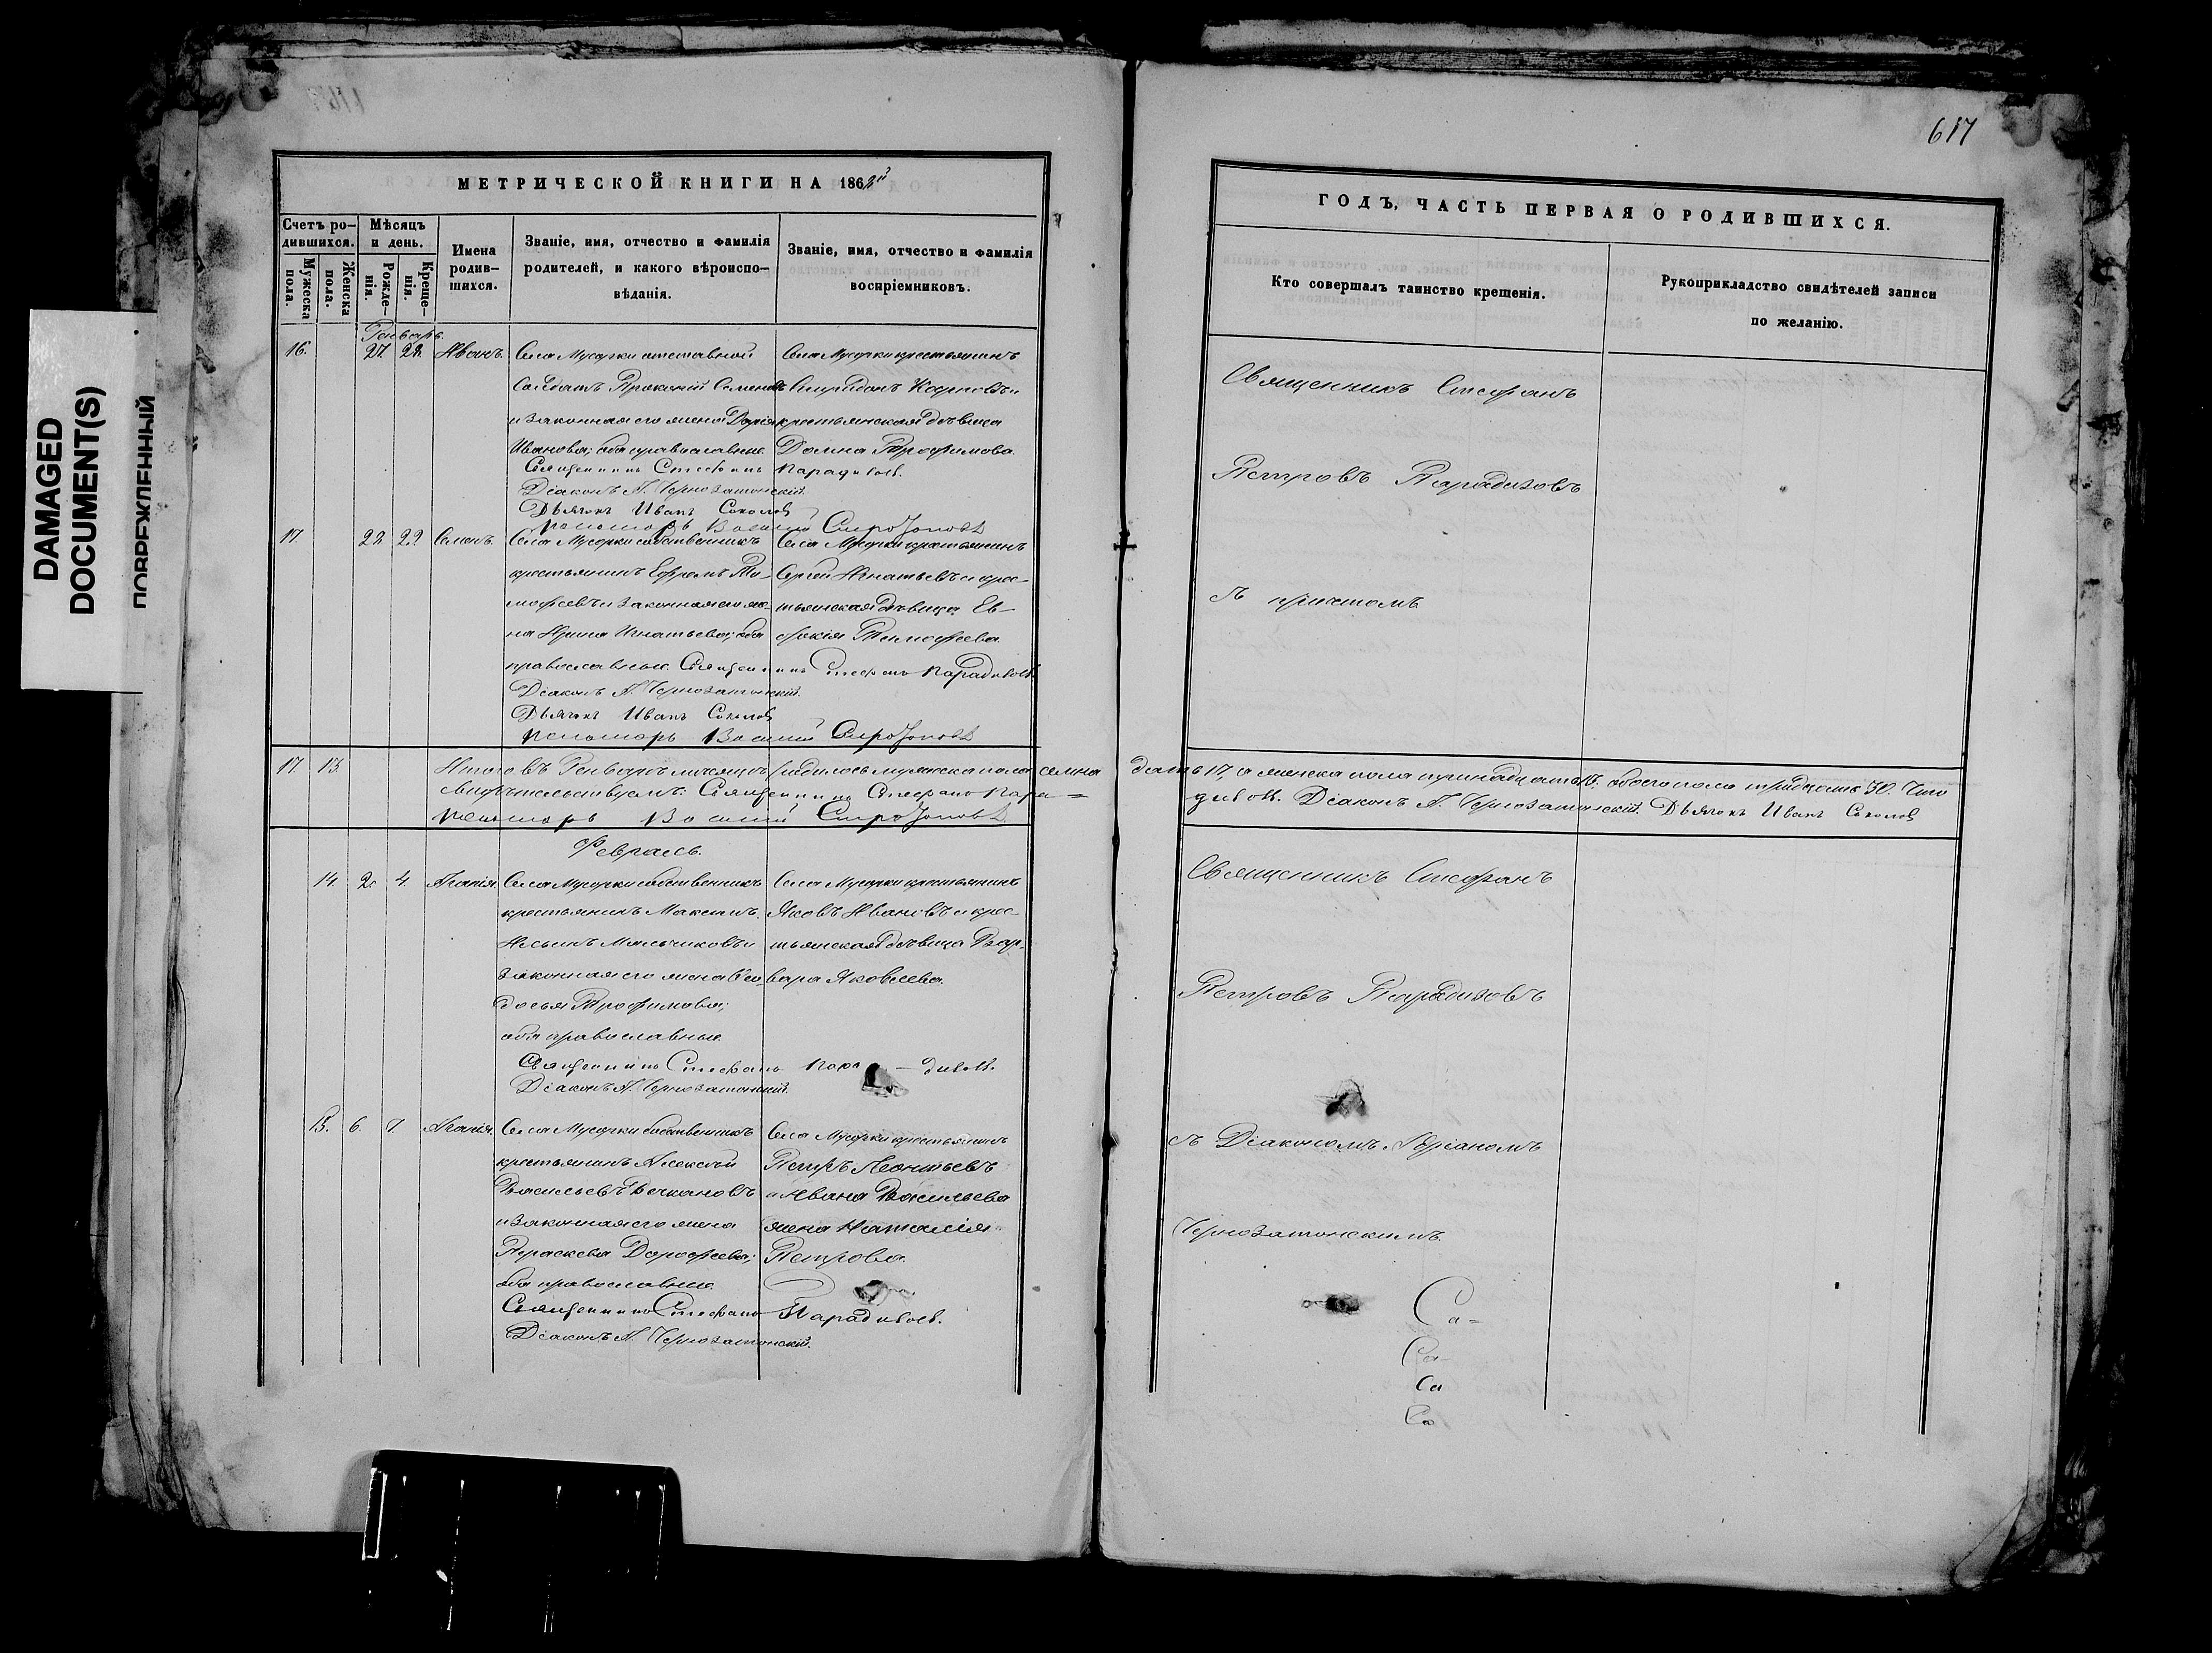 617
DAMAGED
DOCUMENT(S)
ПОВРЕЖДЕННЫЙ
МЕТРИЧЕСКОЙ КНИГИ НА 186
Счетъ ро-
дившихся.
Мѣсяцъ
и день.
Мужеска
пола.
Женска
пола.
Рожде-
нія.
Креще-
нія.
Имена
родив-
шихся.
Званіе, имя, отчество и фамилія
родителей, и какого вѣроиспо-
вѣданія.
Званіе, имя, отчество и фамилія
воспріемниковъ.
Генварь.
16. 27 28. Иванъ.
Села Мусорки отставной
Солдатъ Прокопій Семеновъ
и законная его жена Дарія
Иванова; оба православные.
Священникъ Стефанъ Парадизовъ.
Діаконъ А. Чернозатонскій.
Дьячокъ Иванъ Соколовъ
пономарь
Села Мусорки крестьянинъ
Спиридонъ Карповъ и
крестьянская дѣвица
Домна Трофимова.
17. 22 22 Семенъ.
Села Мусорки собственникъ
крестьянинъ Ефремъ Ти-
мофеевъ и законная его же-
на Ирина Игнатьева; оба
православные. Священникъ Стефанъ Парадизовъ.
Діаконъ А. Чернозатонскій.
Дьячокъ Иванъ Соколовъ
пономарь
Села Мусорки крестьянинъ
Сергей Игнатьевъ и крес-
тьянская дѣвица Ев-
докія Тимофеева
17. 13. Итого въ Генварѣ мѣсяцѣ родилось мужеска пола семна
свидѣтельствуемъ: Священникъ Стефанъ Пара=
пономарь
Февраль.
14. 2. 4. Агапія.
Села Мусорки собственникъ
крестьянинъ Максимъ
Ильинъ Мальчиковъ и
законная его жена Ѳео-
досья Трофимова;
оба православные.
Священникъ Стефанъ Пара — дизовъ.
Діаконъ А. Чернозатонскій.
Села Мусорки крестьянинъ
Яковъ Ивановъ и крес-
тьянская дѣвица Вар-
вара Яковлева.
15. 6. 7. Агапія.
Села Мусорки собственникъ
крестьянинъ Алексѣй
Васильевъ
и законная его жена
Параскева Дорофеева;
оба православные.
Священникъ Стефанъ Парадизовъ.
Діаконъ А. Чернозатонскій.
Села Мусорки крестьянинъ
Петръ Леонтьевъ
и Ивана Васильева
жена Наталія
Петрова.
ГОДЪ, ЧАСТЬ ПЕРВАЯ О РОДИВШИХСЯ.
Кто совершалъ таинство крещенія.
Рукоприкладство свидѣтелей записи
по желанію.
Священникъ Стефанъ
Петровъ Парадизовъ
съ причтомъ
дать 17, а женска пола тринадцать 13. обоего пола тридцать 30. Что
дизовъ. Діаконъ А. Чернозатонскій. Дьячокъ Иванъ Соколовъ
Священникъ Стефанъ
Петровъ Парадизовъ
съ Діакономъ Адріаномъ
Чернозатонскимъ.
Са=
Са-
Са
Са